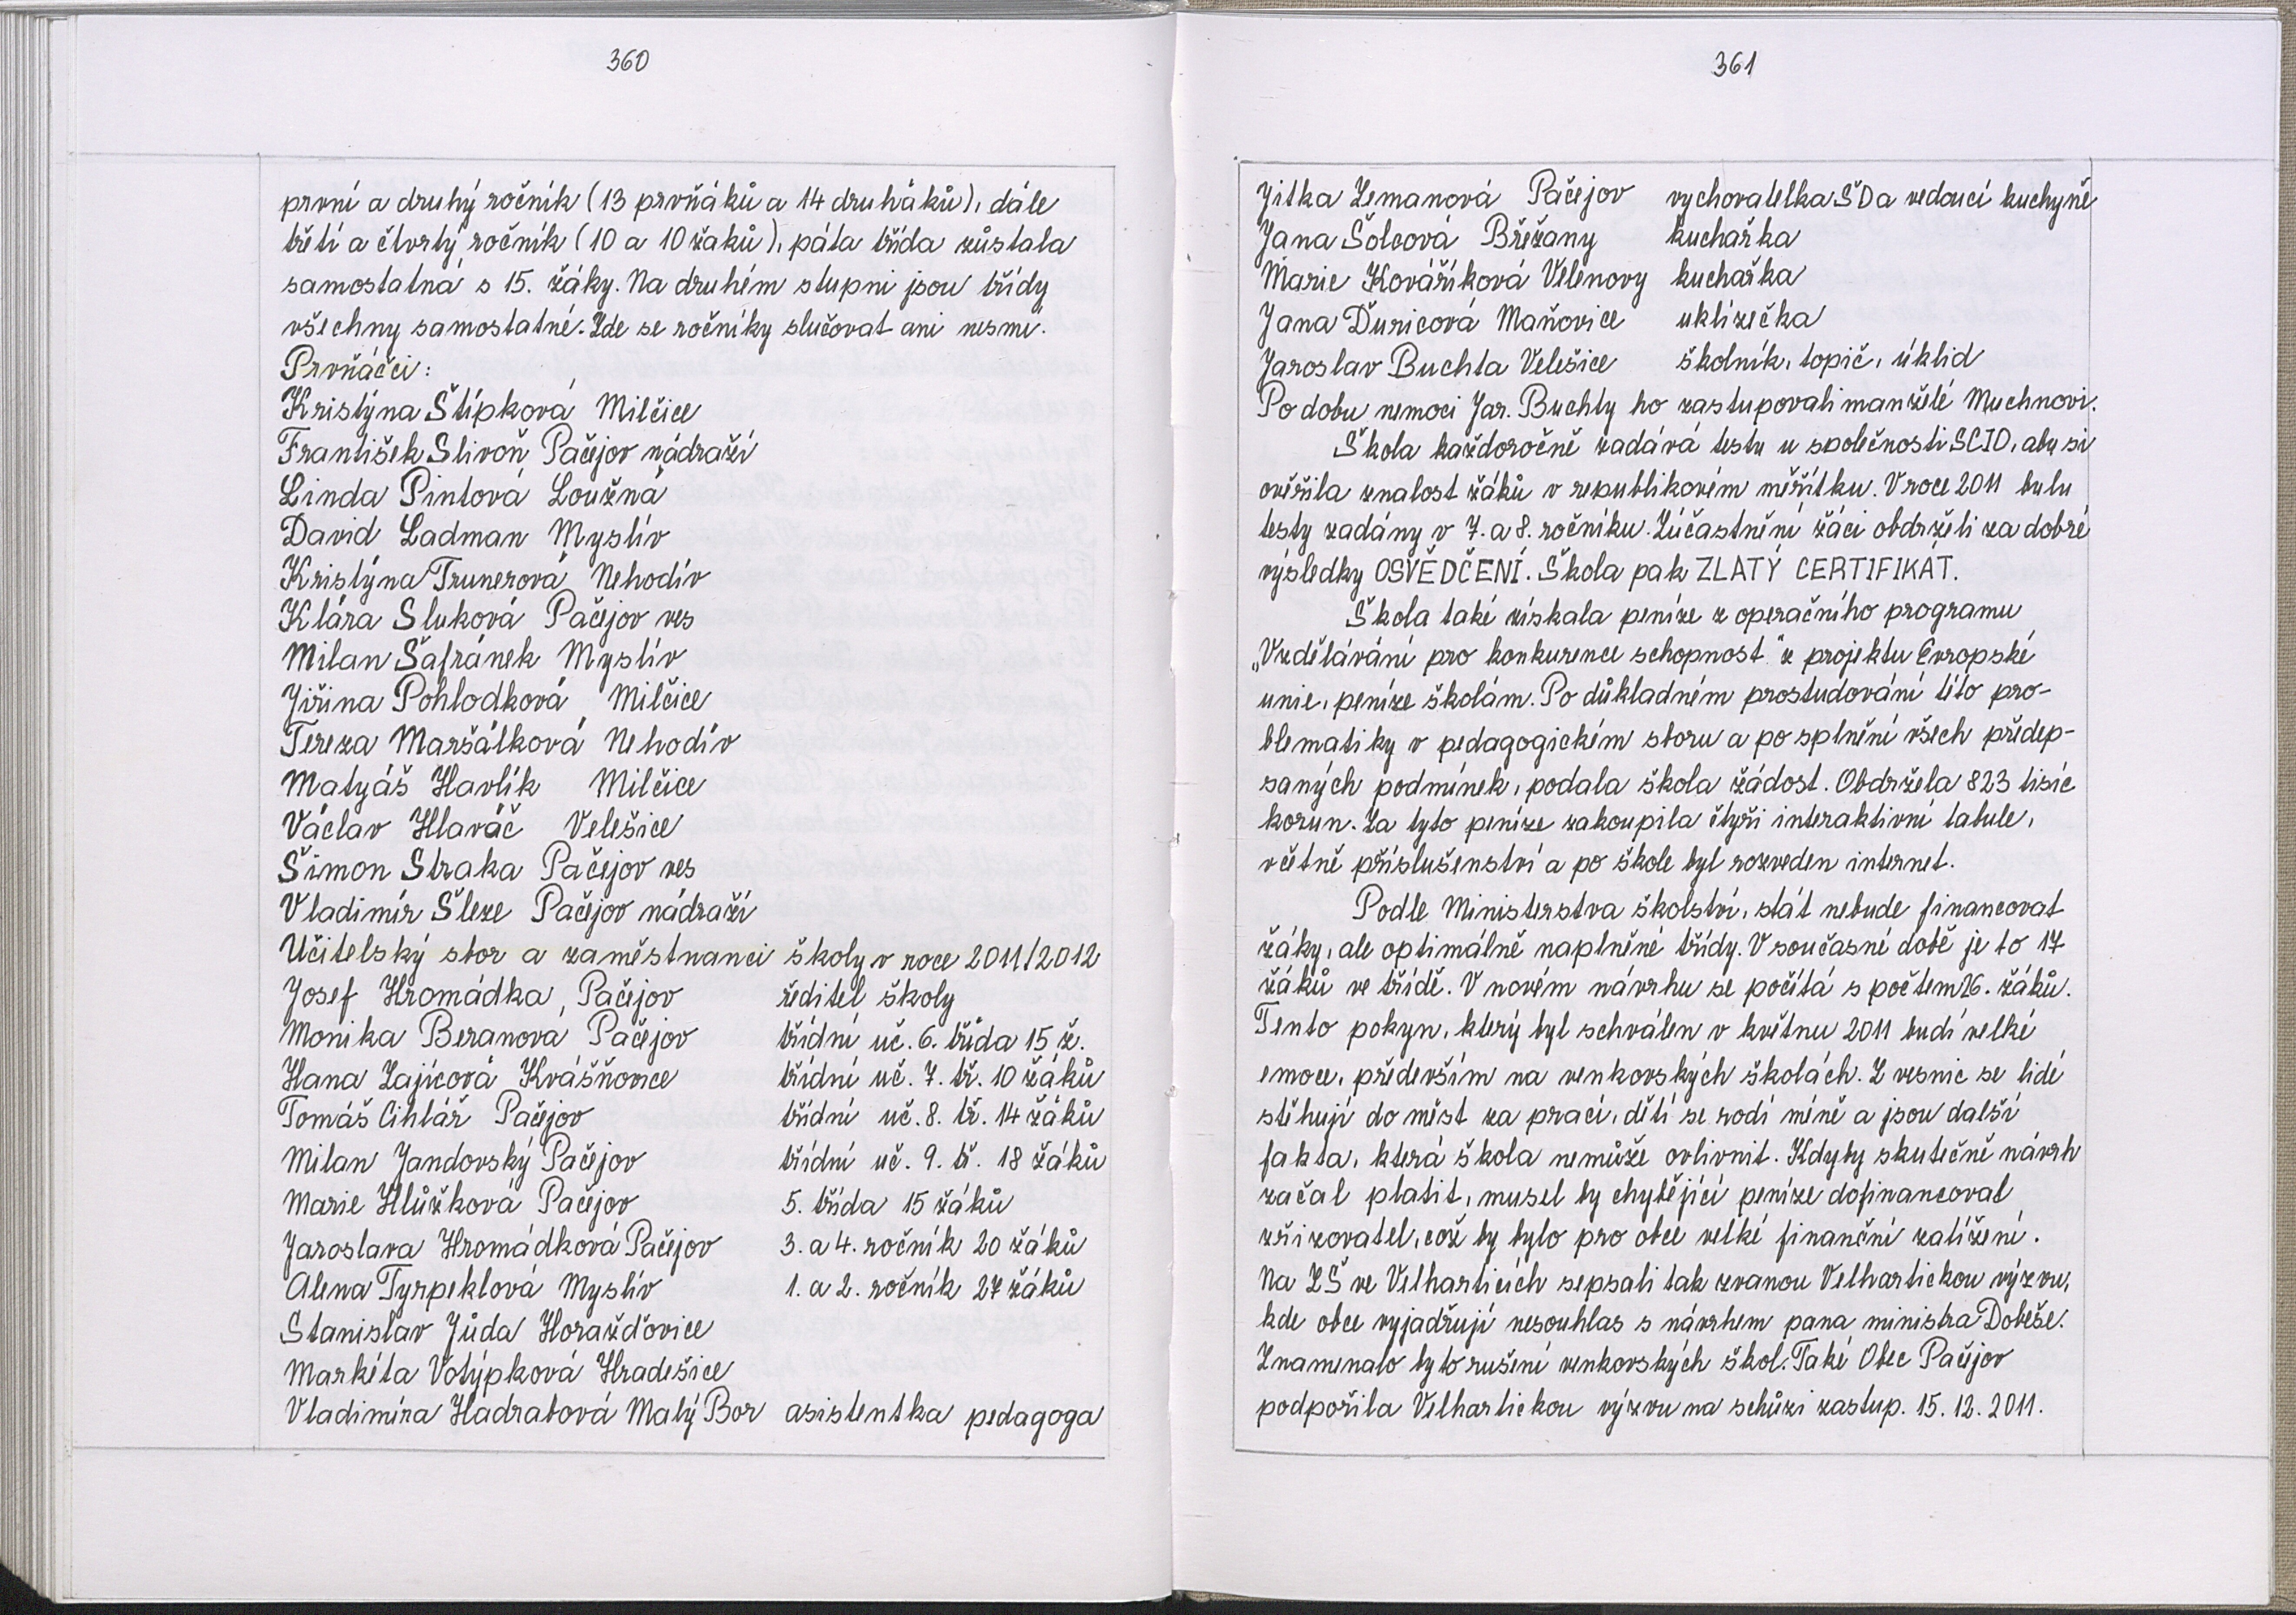 360
první a druhý ročník (13 prvňáků a 14 druháků), dále
třetí a čtvrtý ročník (10 a 10 žáků), pátá třída zůstala
samostatná s 15. žáky. Na druhém stupni jsou třídy
všechny samostatné. Zde se ročníky slučovat ani nesmí.
Prvňáčci:
Kristýna Štípková Milčice
František Slivoň Pačejov nádraží
Linda Pintová Loužná
David Ladman Myslív
Kristýna Trunerová Nehodív
Klára Sluková Pačejov ves
Milan Šafránek Myslív
Jiřina Pohlodková Milčice
Tereza Maršálková Nehodív
Matyáš Havlík Milčice
Václav Hlaváč Velešice
Šimon Straka Pačejov ves
Vladimír Šleze Pačejov nádraží
Učitelský sbor a zaměstnanci školy v roce 2011/2012
Josef Hromádka, Pačejov ředitel školy
Monika Beranová Pačejov třídní uč. 6. třída 15 ž.
Hana Zajícová Kvášňovice třídní uč. 7. tř. 10 žáků
Tomáš Cihlář Pačejov třídní uč. 8. tř. 14 žáků
Milan Jandovský Pačejov třídní uč. 9. tř. 18 žáků
Marie Hlůžková Pačejov 5. třída 15 žáků
Jaroslava Hromádková Pačejov 3. a 4. ročník 20 žáků
Alena Tyrpeklová Myslív 1. a 2. ročník 27 žáků
Stanislav Jůda Horažďovice
Markéta Votýpková Hradešice
Vladimíra Hadrabová Malý Bor asistentka pedagoga
361
Jitka Zemanová Pačejov vychovatelka ŠD a vedoucí kuchyně
Jana Šolcová Břežany kuchařka
Marie Kováříková Velenovy kuchařka
Jana Ďuricová Maňovice uklízečka
Jaroslav Buchta Velešice školník, topič, úklid
Po dobu nemoci Jar. Buchty ho zastupovali manželé Muchnovi.
Škola každoročně zadává testy u společnosti SCIO, aby si
ověřila znalost žáků v republikovém měřítku. V roce 2011 byly
testy zadány v 7. a 8. ročníku. Zúčastnění žáci obdrželi za dobré
výsledky OSVĚDČENÍ. Škola pak ZLATÝ CERTIFIKÁT.
Škola také získala peníze z operačního programu
„Vzdělávání pro konkurence schopnost" z projektu Evropské
unie, peníze školám. Po důkladném prostudování této pro-
blematiky v pedagogickém sboru a po splnění všech předep-
saných podmínek, podala škola žádost. Obdržela 823 tisíc
korun. Za tyto peníze zakoupila čtyři interaktivní tabule,
včetně příslušenství a po škole byl rozveden internet.
Podle Ministerstva školství, stát nebude financovat
žáky, ale optimálně naplněné třídy. V současné době je to 17
žáků ve třídě. V novém návrhu se počítá s počtem 26. žáků.
Tento pokyn, který byl schválen v květnu 2011 budí velké
emoce, především na venkovských školách. Z vesnic se lidé
stěhují do měst za prací, dětí se rodí méně a jsou další
fakta, která škola nemůže ovlivnit. Kdyby skutečně návrh
začal platit, musel by chybějící peníze dofinancovat
zřizovatel, což by bylo pro obce velké finanční zatížení.
Na ZŠ ve Velharticích sepsali tak zvanou Velhartickou výzvu,
kde obce vyjadřují nesouhlas s návrhem pana ministra Dobeše.
Znamenalo by to rušení venkovských škol. Také Obec Pačejov
podpořila Velhartickou výzvu na schůzi zastup. 15. 12. 2011.